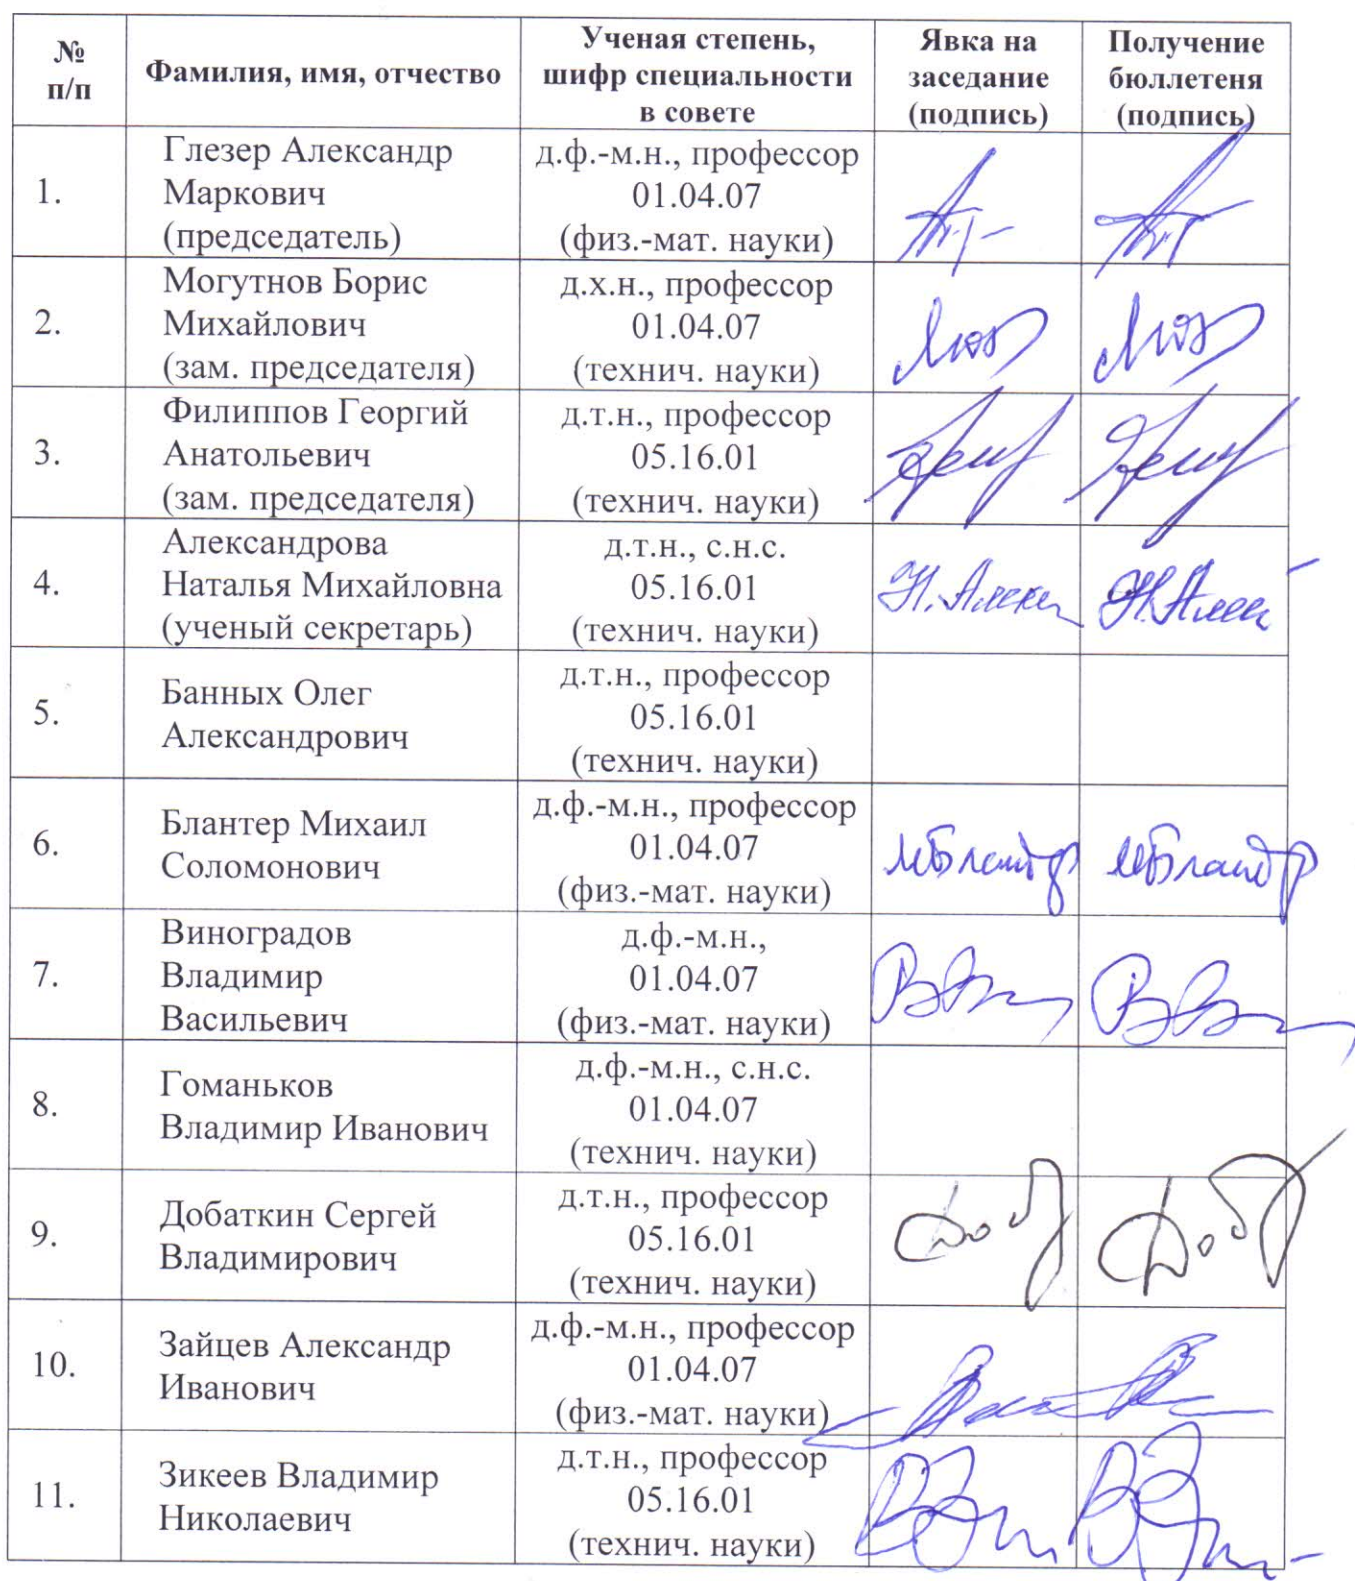 № п/п
Фамилия, имя, отчество
Ученая степень,
шифр специальности
в совете
Явка на
заседание
(подпись)
Получение
бюллетеня
(подпись)
1.
Глезер Александр
Маркович
(председатель)
д.ф.-м.н., профессор
01.04.07
(физ.-мат. науки)
2.
Могутнов Борис
Михайлович
(зам. председателя)
д.х.н., профессор
01.04.07
(технич. науки)
3.
Филиппов Георгий
Анатольевич
(зам. председателя)
д.т.н., профессор
05.16.01
(технич. науки)
4.
Александрова
Наталья Михайловна
(ученый секретарь)
д.т.н., с.н.с.
05.16.01
(технич. науки)
5.
Банных Олег
Александрович
д.т.н., профессор
05.16.01
(технич. науки)
6.
Блантер Михаил
Соломонович
д.ф.-м.н., профессор
01.04.07
(физ.-мат. науки)
7.
Виноградов
Владимир
Васильевич
д.ф.-м.н.,
01.04.07
(физ.-мат. науки)
8.
Гоманьков
Владимир Иванович
д.ф.-м.н., с.н.с.
01.04.07
(технич. науки)
9.
Добаткин Сергей
Владимирович
д.т.н., профессор
05.16.01
(технич. науки)
10.
Зайцев Александр
Иванович
д.ф.-м.н., профессор
01.04.07
(физ.-мат. науки)
11.
Зикеев Владимир
Николаевич
д.т.н., профессор
05.16.01
(технич. науки)